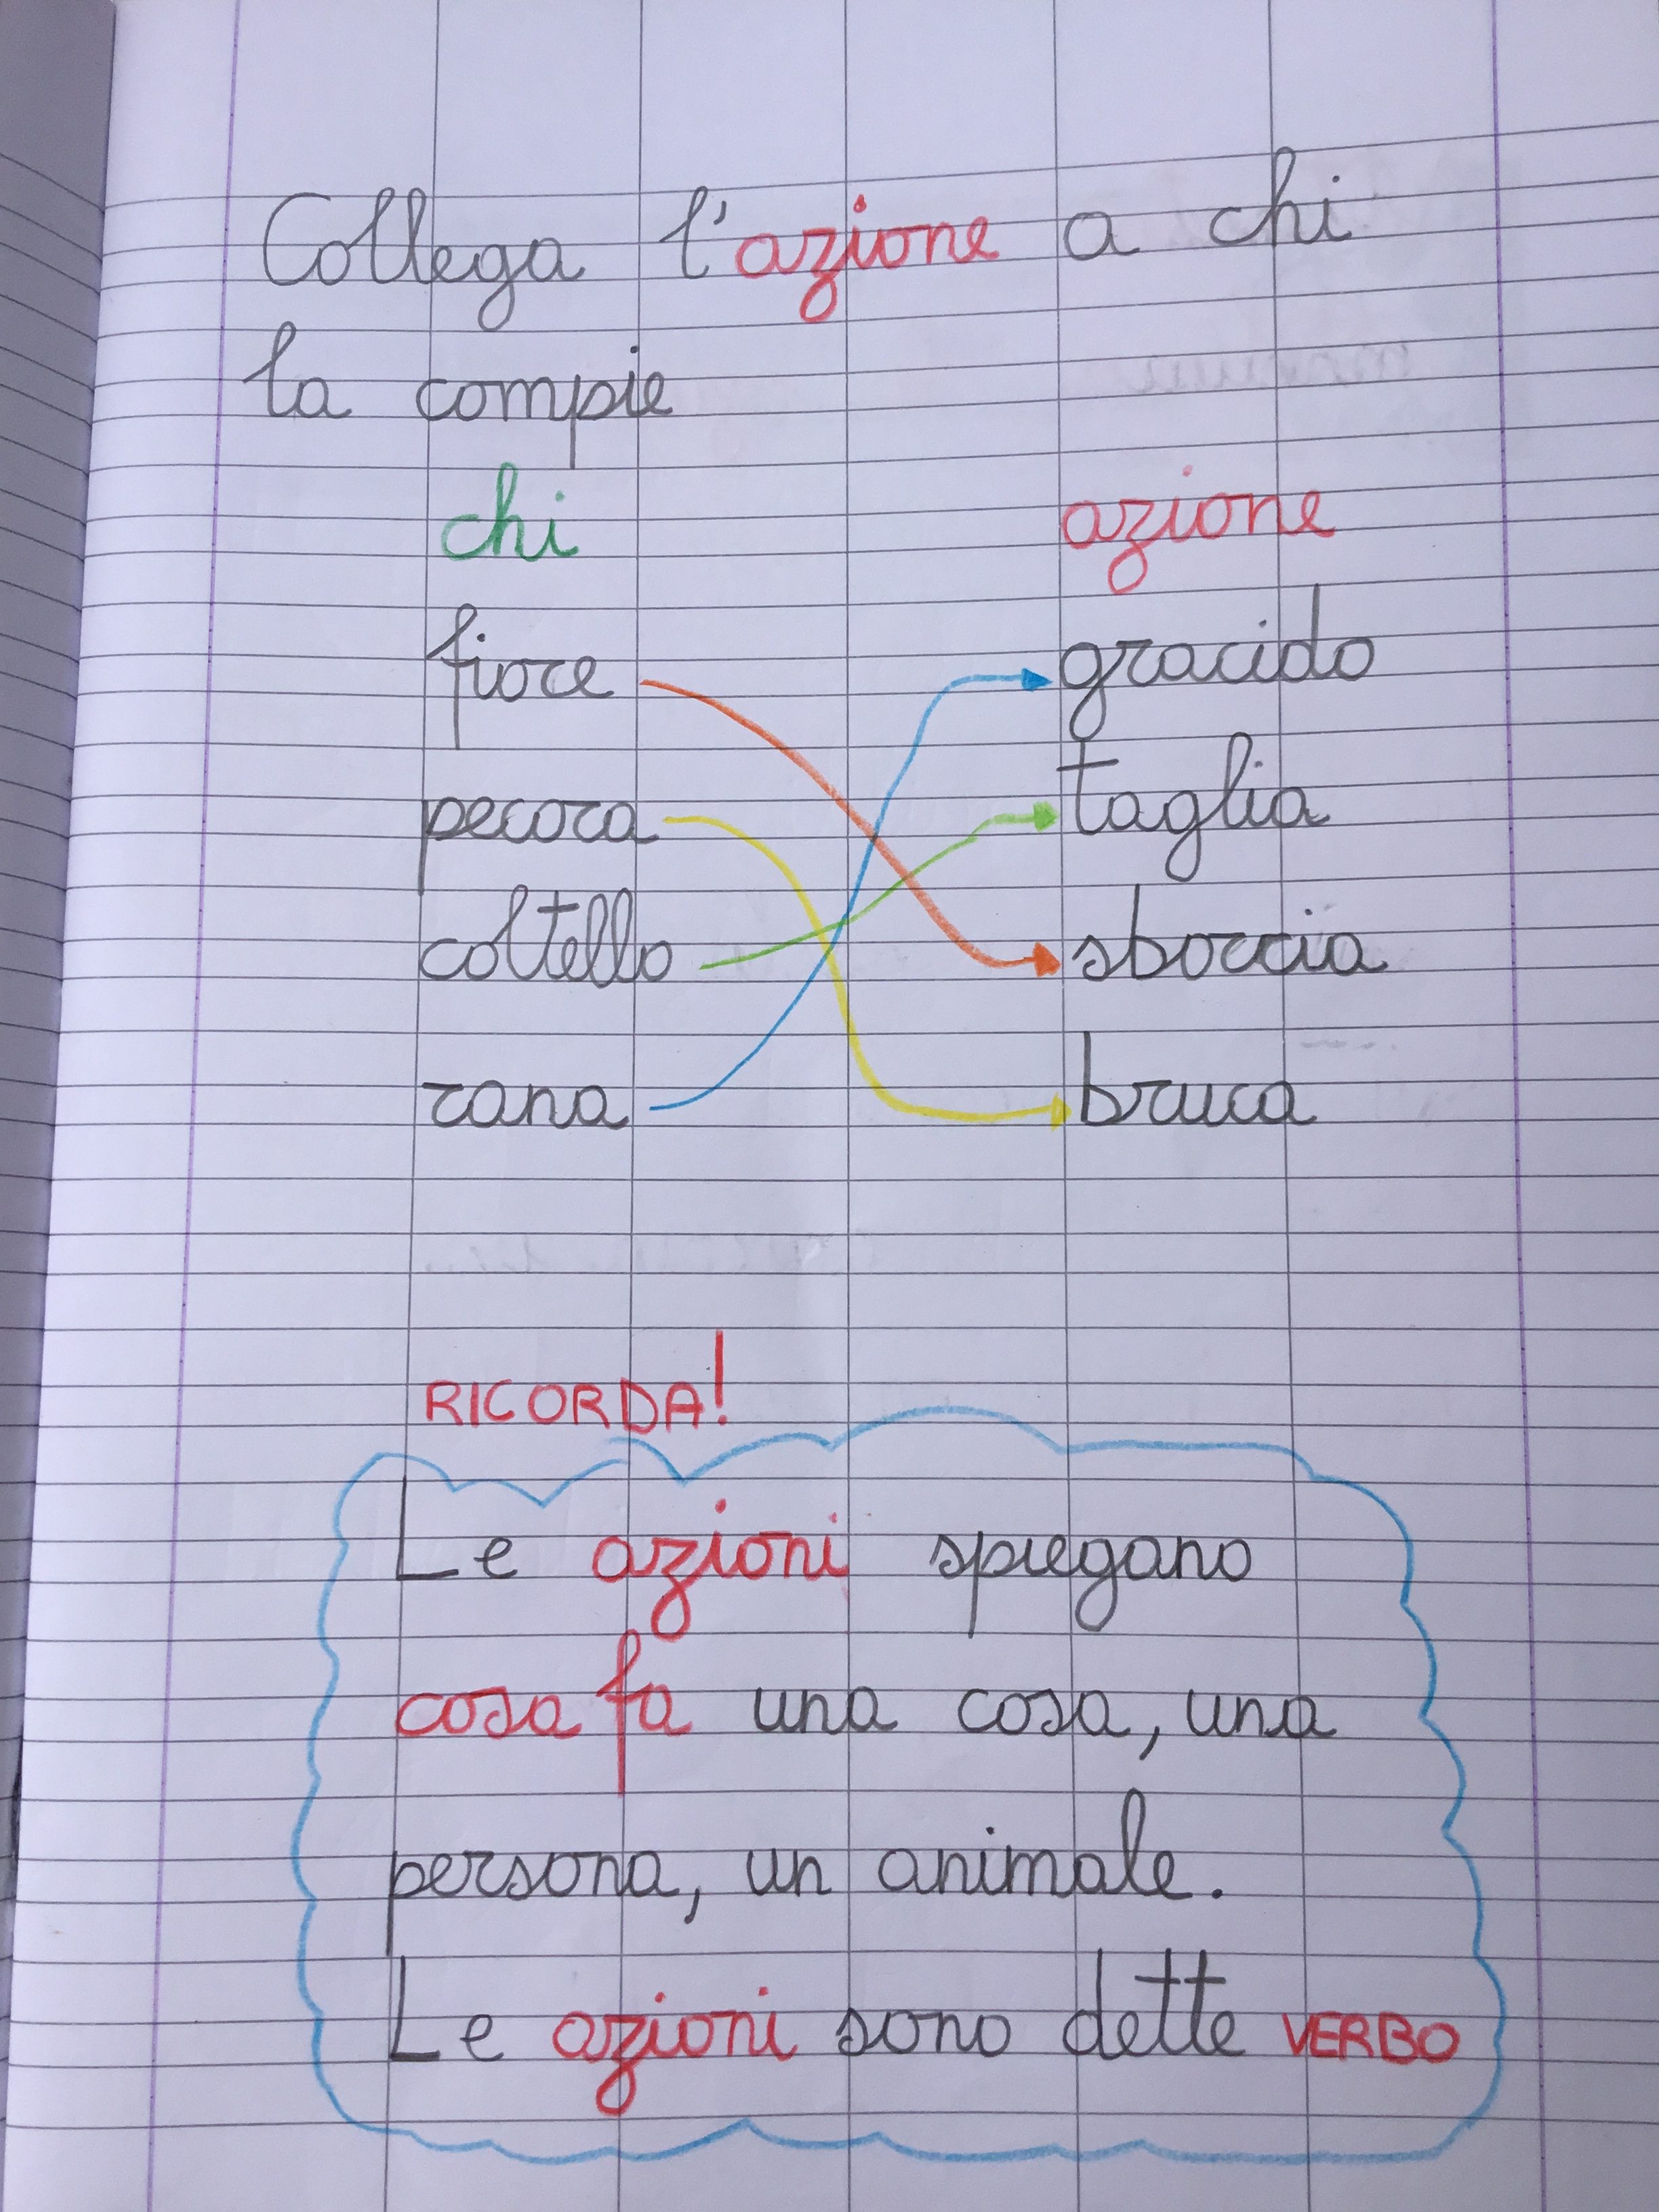 Collega l'azione a chi
la compie
chi azione
fiore gracido
pecora taglia
coltello sboccia
rana bruca
RICORDA!
Le azioni spiegano
cosa fa una cosa, una
persona, un animale.
Le azioni sono dette VERBO